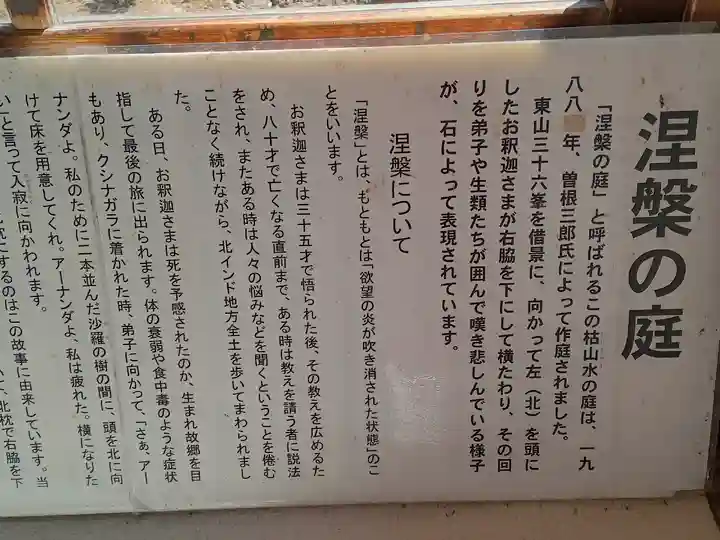 涅槃の庭
「涅槃の庭」と呼ばれるこの枯山水の庭は、一九
八八 年、曽根三郎氏によって作庭されました。
東山三十六峯を借景に、向かって左（北）を頭に
したお釈迦さまが右脇を下にして横たわり、その回
りを弟子や生類たちが囲んで嘆き悲しんでいる様子
が、石によって表現されています。
涅槃について
「涅槃」とは、もともとは「欲望の炎が吹き消された状態」のこ
とをいいます。
お釈迦さまは三十五才で悟られた後、その教えを広めるた
め、八十才で亡くなる直前まで、ある時は教えを請う者に説法
をされ、またある時は人々の悩みなどを聞くということを倦む
ことなく続けながら、北インド地方全土を歩いてまわられまし
た。
ある日、お釈迦さまは死を予感されたのか、生まれ故郷を目
指して最後の旅に出られます。体の衰弱や食中毒のような症状
もあり、クシナガラに着かれた時、弟子に向かって、「さぁ、アー
ナンダよ。私のために二本並んだ沙羅の樹の間に、頭を北に向
けて床を用意してくれ。アーナンダよ、私は疲れた。横になりた
い」と言って入寂に向かわれます。
にするのはこの故事に由来しています。当
北枕で右脇を下